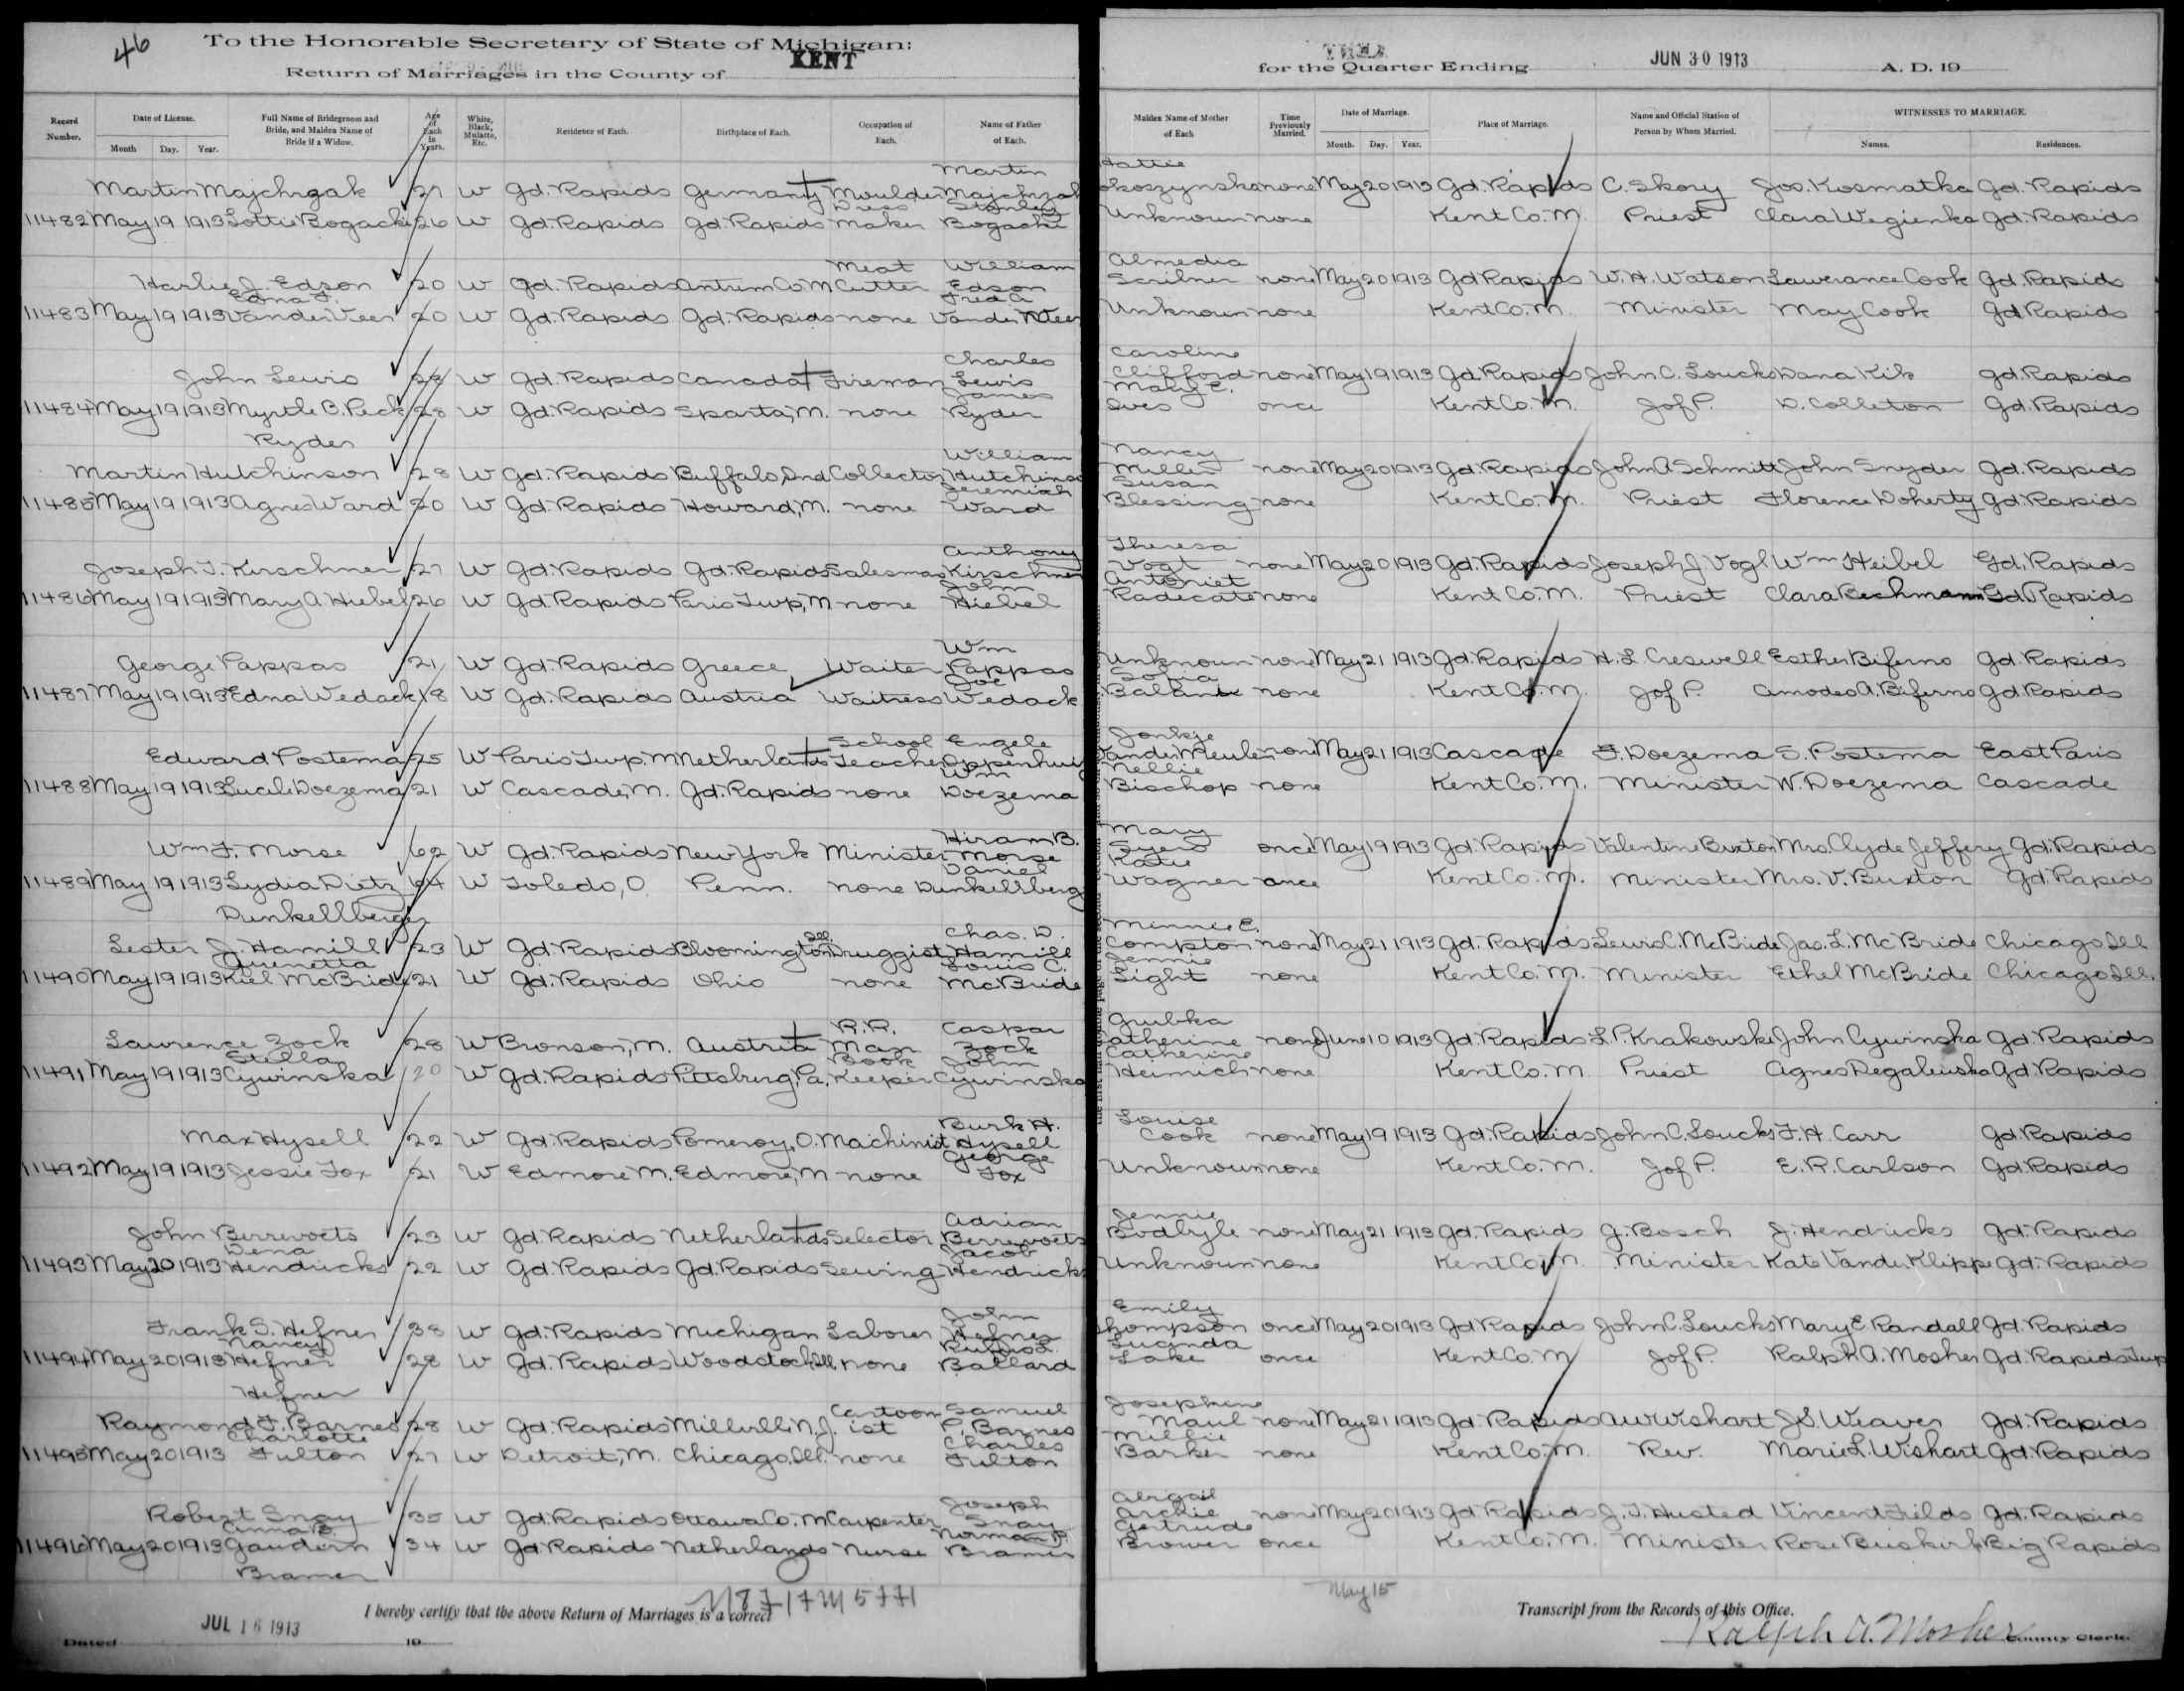 46
To the Honorable Secretary of State of Michigan:
Return of Marriages in the County of KENT
for the Quarter Ending JUN 30 1913 A. D. 19
Record Number.
Date of License.
Month Day. Year.
Full Name of Bridegroom and Bride, and Maiden Name of Bride if a Widow.
Age of Each in Years.
White, Black, Mulatto, Etc.
Residence of Each.
Birthplace of Each.
Occupation of Each.
Name of Father of Each.
Maiden Name of Mother of Each
Time Previously Married.
Date of Marriage.
Month. Day. Year.
Place of Marriage.
Name and Official Station of Person by Whom Married.
WITNESSES TO MARRIAGE.
Names. Residences.
Martin Majchrzak 27 W Gd. Rapids Germany Moulder Martin Majchrzak Hattie none May 20 1913 Gd. Rapids C. Skory Jos. Kosmatka Gd. Rapids
11482 May 19 1913 Lottie Bogacki 26 W Gd. Rapids Gd. Rapids Dress Maker Stanley Bogacki Unknown none Kent Co. M. Priest Clara Wegienka Gd. Rapids
Harlie J. Edson 20 W Gd. Rapids Antrim Co M Meat Cutter William Edson Almedia Scribner none May 20 1913 Gd Rapids W. H. Watson Lawerance Cook Gd. Rapids
11483 May 19 1913 Edna F. VanderVeer 20 W Gd. Rapids Gd. Rapids none Fred A. Vander Veer Unknown none Kent Co. M. Minister May Cook Gd Rapids
John Lewis W Gd. Rapids Canada Fireman Charles Lewis Caroline Clifford none May 19 1913 Gd. Rapids John C. Loucks Dana Kik Gd. Rapids
11484 May 19 1913 Myrtle B. Peck 28 W Gd. Rapids Sparta, M. none James Ryder Mary E. Ives once Kent Co. M. J of P. D. Colleton Gd. Rapids
Ryder
Martin Hutchinson 28 W Gd. Rapids Buffalo, Ind Collector William Hutchinson Nancy Miller none May 20 1913 Gd. Rapids John A Schmitt John Snyder Gd. Rapids
11485 May 19 1913 Agnes Ward 20 W Gd. Rapids Howard, M. none Jeremiah Ward Susan Blessing none Kent Co. M. Priest Florence Doherty Gd. Rapids
Joseph J. Kirschner 27 W Gd. Rapids Gd. Rapids Salesman Anthony Kirschner Theresa Vogt none May 20 1913 Gd. Rapids Joseph J. Vogl Wm Heibel Gd. Rapids
11486 May 19 1913 Mary A. Hiebel 26 W Gd. Rapids Paris Twp, M none John Hiebel Antoniet Radecate none Kent Co. M. Priest Clara Bechmann Gd. Rapids
George Pappas 21 W Gd. Rapids Greece Waiter Wm Pappas Unknown none May 21 1913 Gd. Rapids H. L. Creswell Esther Biferno Gd. Rapids
11487 May 19 1913 Edna Wedack 18 W Gd. Rapids Austria Waitress Joe Wedack Sofia none Kent Co. M. J of P. Amodeo A. Biferno Gd. Rapids
Edward Postema 25 W Paris Twp. M Netherlands School Teacher Engele Oppenhuiz Jonkje Vander Meulen none May 21 1913 Cascade F. Doezema S. Postema East Paris
11488 May 19 1913 Lucile Doezema 21 W Cascade, M. Gd. Rapids none Wm Doezema Nellie Bischop none Kent Co. M. Minister W. Doezema Cascade
Wm F. Morse 62 W Gd. Rapids New York Minister Hiram B. Morse Mary once May 19 1913 Gd. Rapids Valentine Buxton Mrs. Clyde Jeffery Gd. Rapids
11489 May 19 1913 Lydia Dietz 64 W Toledo, O. Penn. none Daniel Dunkellberg Katie Wagner once Kent Co. M. Minister Mrs. V. Buxton Gd. Rapids
Dunkellberger
Lester J. Hamill 23 W Gd. Rapids Bloomington Ill Druggist Chas. D. Hamill Minnie E. Compton none May 21 1913 Gd. Rapids Lewis C. McBride Jas. L. McBride Chicago Ill
11490 May 19 1913 Kiel McBride 21 W Gd. Rapids Ohio none Louis C. McBride Jennie Light none Kent Co. M. Minister Ethel McBride Chicago Ill.
Lawrence Zock 28 W Bronson, M. Austria R.R. Man Caspar Zock Grubka Catherine none June 10 1913 Gd. Rapids L. P. Krakowski John Cywinska Gd. Rapids
11491 May 19 1913 Stella Cywinska 20 W Gd. Rapids Pittsburg, Pa. Book Keeper John Cywinska Catherine Heinrich none Kent Co. M. Priest Agnes Gd. Rapids
Max Hysell 22 W Gd. Rapids Pomeroy, O. Machinist Burk H. Hysell Louise Cook none May 19 1913 Gd. Rapids John C. Loucks F. H. Carr Gd. Rapids
11492 May 19 1913 Jessie Fox 21 W Edmore M. Edmore, M none George Fox Unknown none Kent Co. M. J of P. E. R. Carlson Gd. Rapids
John Berrevoets 23 W Gd. Rapids Netherlands Selector Adrian Berrevoets Jennie Bodbyle none May 21 1913 Gd. Rapids J. Bosch J. Hendricks Gd. Rapids
11493 May 20 1913 Dena Hendricks 22 W Gd. Rapids Gd. Rapids Sewing Jacob Hendricks Unknown none Kent Co. M. Minister Kate Vander Klippe Gd. Rapids
Frank S. Hefner 38 W Gd. Rapids Michigan Laborer John Hefner Emily Thompson once May 20 1913 Gd. Rapids John C. Loucks Mary E Randall Gd. Rapids
11494 May 20 1913 Nancy Hefner 28 W Gd. Rapids Woodstock, Ill. none Rufus Ballard Lucinda Lake once Kent Co. M J of P. Ralph A. Mosher Gd. Rapids Twp
Hefner
Raymond F. Barnes 28 W Gd. Rapids Millvill, N.J. Cartoonist Samuel P. Barnes Josephine Maul none May 21 1913 Gd. Rapids A W Wishart J. S. Weaver Gd. Rapids
11495 May 20 1913 Charlotte Fulton 27 W Detroit, M. Chicago, Ill. none Charles Fulton Millie Barker none Kent Co. M. Rev. Marie L. Wishart Gd. Rapids
Robert Snay 35 W Gd. Rapids Ottawa Co. M Carpenter Joseph Snay Abigail Archie none May 20 1913 Gd. Rapids J. T. Husted Vincent Fields Gd. Rapids
11496 May 20 1913 Anna B. Gaudern 34 W Gd Rapids Netherlands Nurse Norman P. Bramer Gertrude Brower once Kent Co. M. Minister Rose Buskirk Big Rapids
Bramer
May 15
I hereby certify that the above Return of Marriages is a correct Transcript from the Records of this Office.
Dated JUL 16 1913 19
Ralph A. Mosher County Clerk.